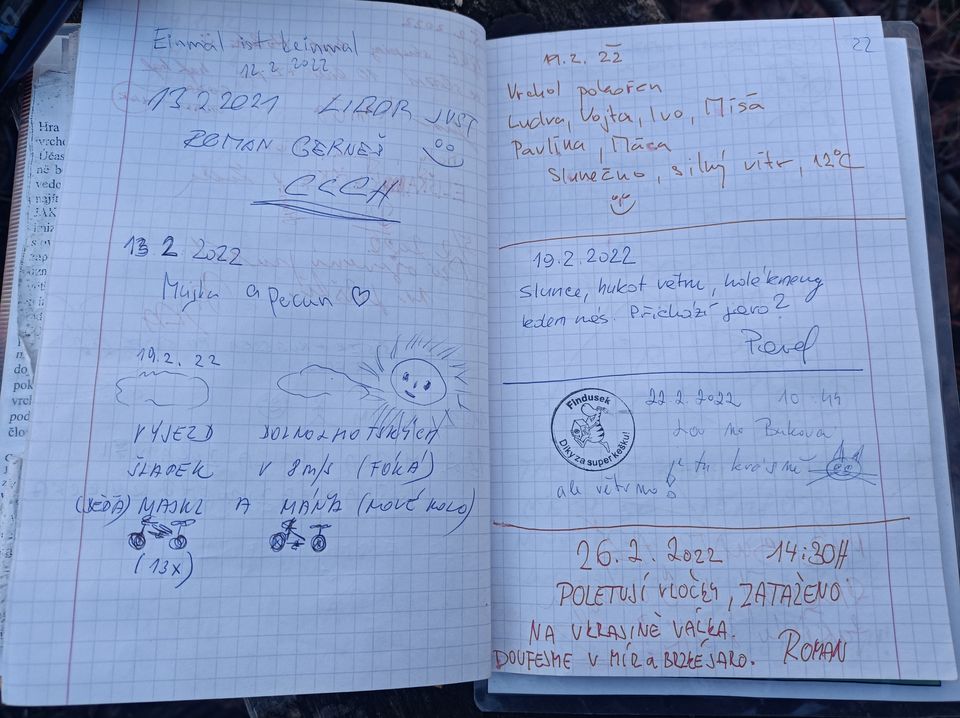 Einmal ist keinmal
12.2.2022
13.2.2021 LIBOR JUST
ROMAN CERNEŠ
CCCH
13 2 2022
Majka a pecun ♡
19.2.22
VÝJEZD DOLNOLHOTSKÝCH
ŠLAPEK V 8m/s (FÓKÁ)
(DĚĎA) MASKL A MÁŇA (NOVÉ KOLO)
(13x)
22
19.2.22
Vrchol pokořen
Ludva, Vojta, Ivo, Míša
Pavlína, Máca
Slunečno, silný vítr, 12°C
19.2.2022
Slunce, hukot větru, holé kmeny
kolem nás. Přichází jaro?
Pavel
Findusek
Díky za super kešku!
22.2.2022 10:44
Lov na Bukova
je tu krásně
ale větrno!
26.2.2022 14:30H
POLETUJÍ VLOČKY, ZATAŽENO
NA UKRAJINĚ VÁLKA.
DOUFEJME V MÍR a BRZKÉ JARO. ROMAN